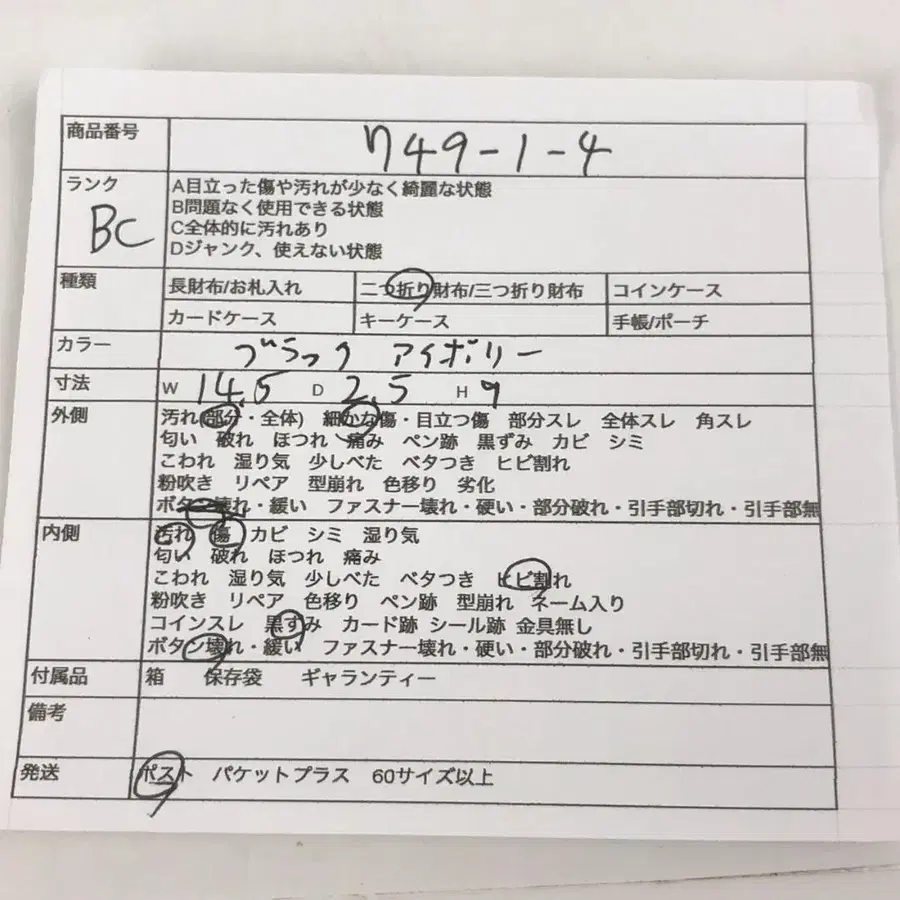 商品番号 749-1-4
ランク BC
A目立った傷や汚れが少なく綺麗な状態
B問題なく使用できる状態
C全体的に汚れあり
Dジャンク、使えない状態
種類 長財布/お札入れ 二つ折り財布/三つ折り財布 コインケース
カードケース キーケース 手帳/ポーチ
カラー ブラック アイボリー
寸法 W 14.5 D 2.5 H 9
外側 汚れ(部分・全体) 細かな傷・目立つ傷 部分スレ 全体スレ 角スレ
匂い 破れ ほつれ 痛み ペン跡 黒ずみ カビ シミ
こわれ 湿り気 少しべた ベタつき ヒビ割れ
粉吹き リペア 型崩れ 色移り 劣化
ボタン壊れ・緩い ファスナー壊れ・硬い・部分破れ・引手部切れ・引手部無
内側 汚れ 傷 カビ シミ 湿り気
匂い 破れ ほつれ 痛み
こわれ 湿り気 少しべた ベタつき ヒビ割れ
粉吹き リペア 色移り ペン跡 型崩れ ネーム入り
コインスレ 黒ずみ カード跡 シール跡 金具無し
ボタン壊れ・緩い ファスナー壊れ・硬い・部分破れ・引手部切れ・引手部無
付属品 箱 保存袋 ギャランティー
備考
発送 ポスト パケットプラス 60サイズ以上